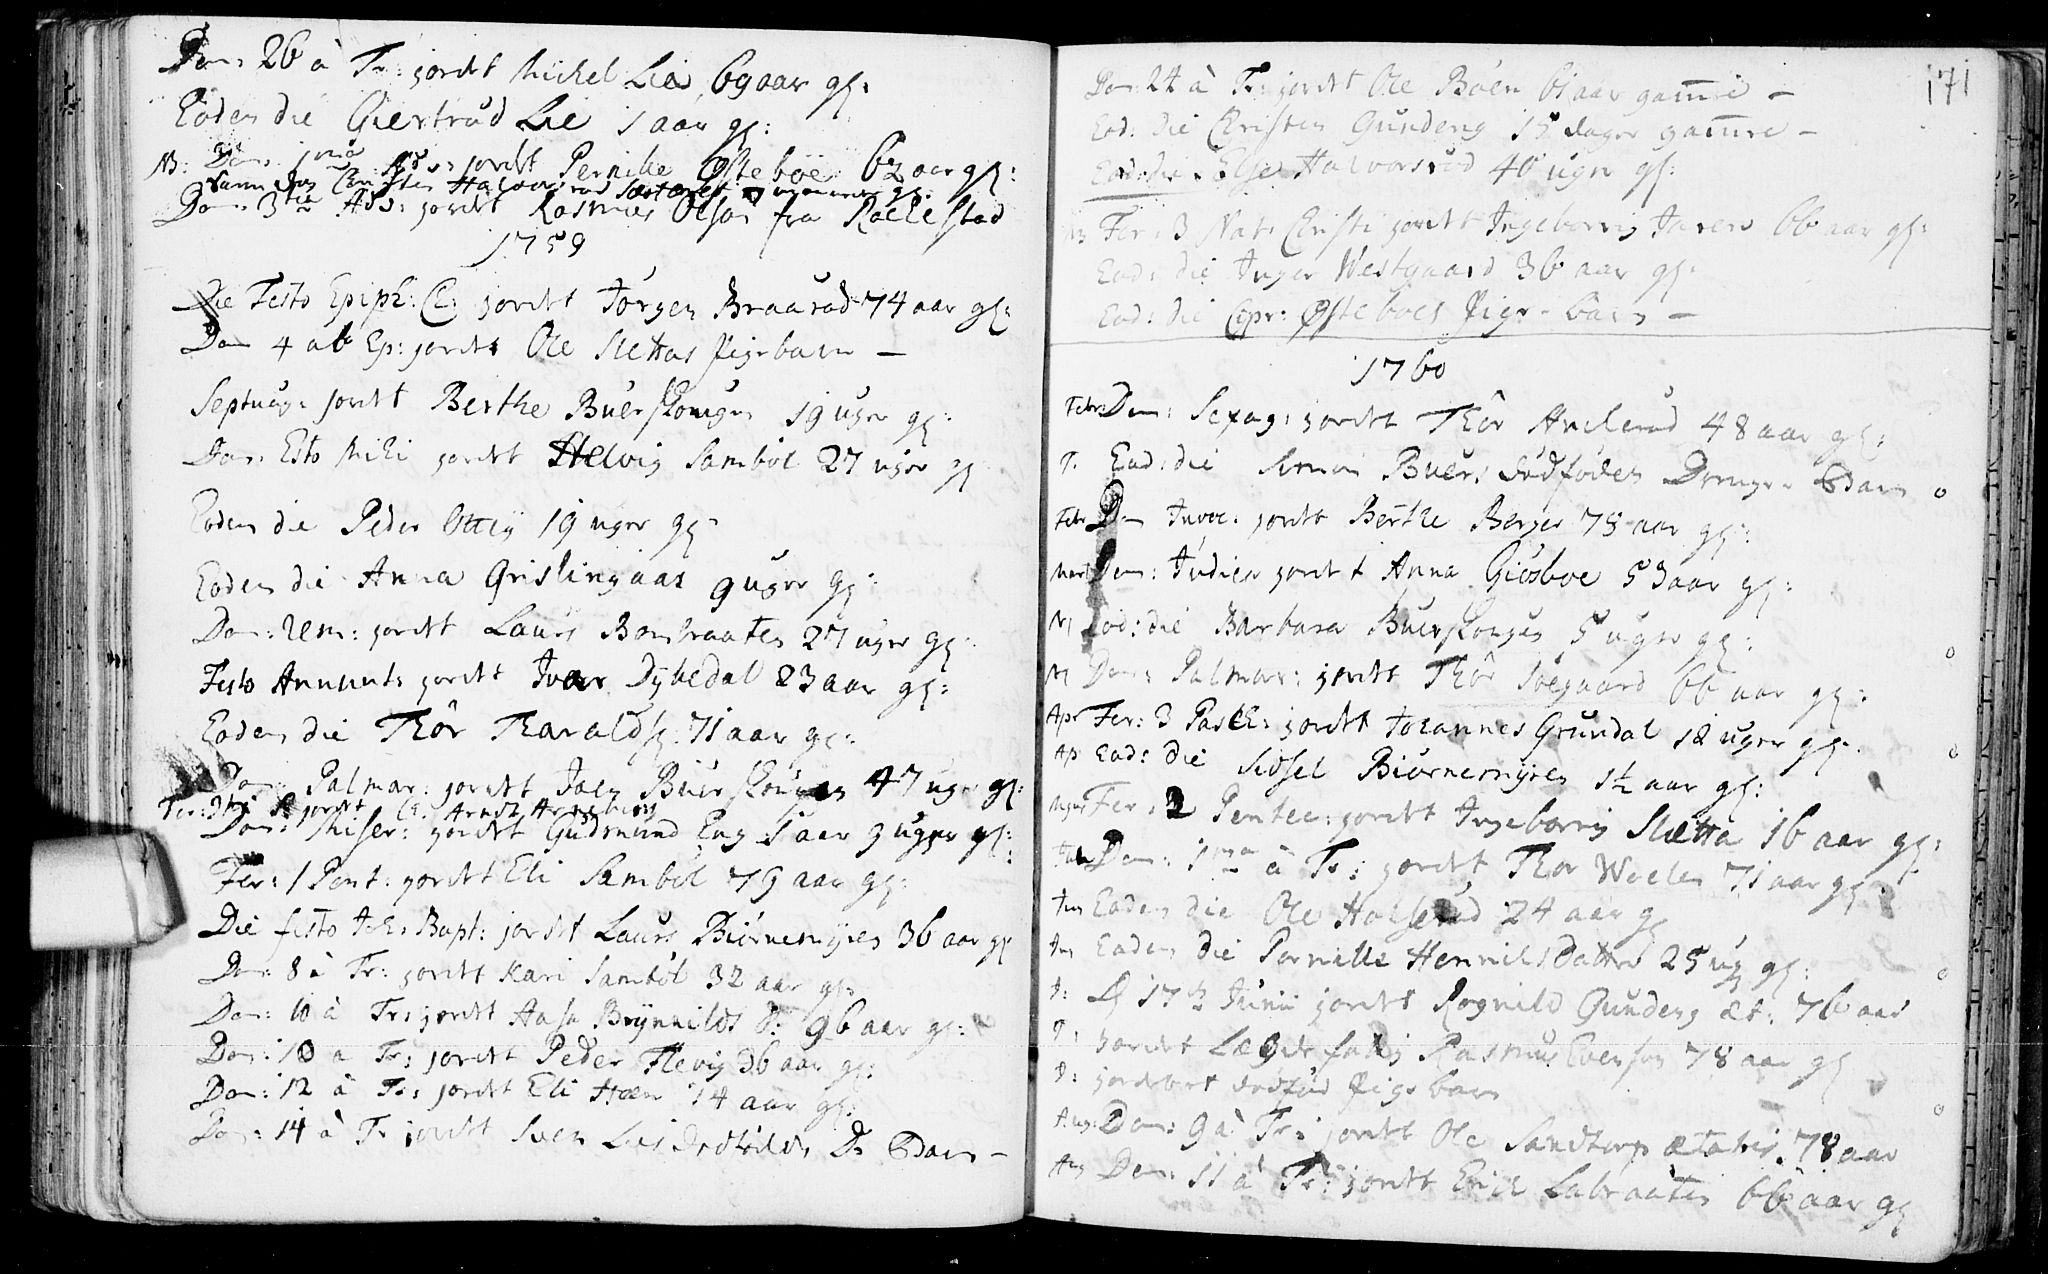 Dom: 26 à Tr: jordt Michel Lie, 69 aar gl:
Eodem die Giertrud Lie 1 aar gl:
NB: Dom: 1ma Adv: jordt Pernille Østeboe 62 aar gl:
Samme Dag Christen Halvorsrud
Dom: 3tia Adv: jordt Rasmus Olsøn fra Rachestad
1759
Die Festo Epiph: C: jordt Jørgen Braarud 74 aar gl:
Dom 4 ab Ep: jordt Ole Slettas Pigebarn —
Septuag: jordt Berthe Buerskougen 19 uger gl:
Dom: Esto Mihi jordt Helvig Sambøl 27 uger gl
Eodem die Peder Ottey 19 uger gl:
Eodem die Anna Grislingaas 9 uger gl:
Dom: Rem: jordt Laurs Bombraaten 27 uger gl:
Festo Annunt: jordt Ivar Dybedal 23 aar gl:
Eodem die Thôr Tharaldsen 71 aar gl:
Dom: Palmar: jordt Joen Buerskougen 47 uger gl:
Fer: 3tia P jordt C: Arndt Arneberg
Dom: Miser: jordt Gudmund Eng 5 aar 9 uger gl:
Fer: 1 Pent: jordt Eli Sambøl 79 aar gl:
Die festo Joh: Bapt: jordt Laurs Biørnemyren 36 aar gl
Dom: 8 à Tr: jordt Kari Sambøl 32 aar gl:
Dom: 10 à Tr: jordt Aase Brynnilds d: 96 aar gl:
Dom: 10 a Tr: jordt Peder Flevig 36 aar gl:
Dom: 12 à Tr: jordt Eli Hæn 74 aar gl:
Dom: 14 à Tr jordt Sven Lies Dødfødde D: Barn —
171
Dom: 24 à Tr: jordt Ole Boen 61 aar gamel —
Eod: die Christen Gundeng 15 dager gamel —
Eod: die Else Halvorsrud 40 uger gl:
NB Fer: 3 Nat: Christi jordt Ingeborrig Jaren 66 aar gl:
Eod: die Inger Westgaard 36 aar gl:
Eod: die Chr: Østeboes Pige-barn —
1760
Febr Dom: Sexag: jordt Thôr Avelsrud 48 aar gl:
F. Eod: die Simon Buers Dødføden Drenge-Barn o
Febr Dom Invoc: jordt Berthe Berger 75 aar gl:
Mart Dom: Judica jordt Anna Giøsboe 53 aar gl:
M Eod: die Barbara Buerskougen 5 uger gl:
M Dom: Palmar: jordt Thôr Søegaard 66 aar gl:
o
Apr Fer: 3 Pasch: jordt Johannes Grundal 12 uger gl:
Ap Eod: die Sidsel Biørnemyren 1½ aar gl: o
Fer: 2 Pentec: jordt Ingeborrig Sletta 16 aar gl:
Jun Dom: 1ma à Tr: jordt Thor Weelen 71 aar gl:
Jun Eodem die Ole Halserud 24 aar gl
Jun Eodem die Pernille Henrichs datter 25 ug gl: o
J: D 17de Junii jordt Rognild Gundeng æt: 76 aar
jordet Rasmus Evensen 78 aar gl
J: jordet Pige barn
Aug: Dom: 9 à Tr: jordt Ole Sandtorp ætatis 78 aar o
Aug Dom: 11 à Tr: jordt Erich Labraaten 66 aar gl